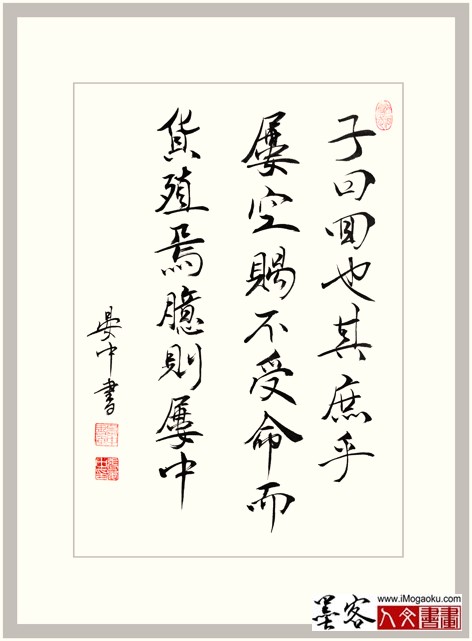 子曰回也其庶乎
屡空賜不受命而
貨殖焉臆則屡中
晏中書
墨客
www.iMogaoku.com
人文書畫